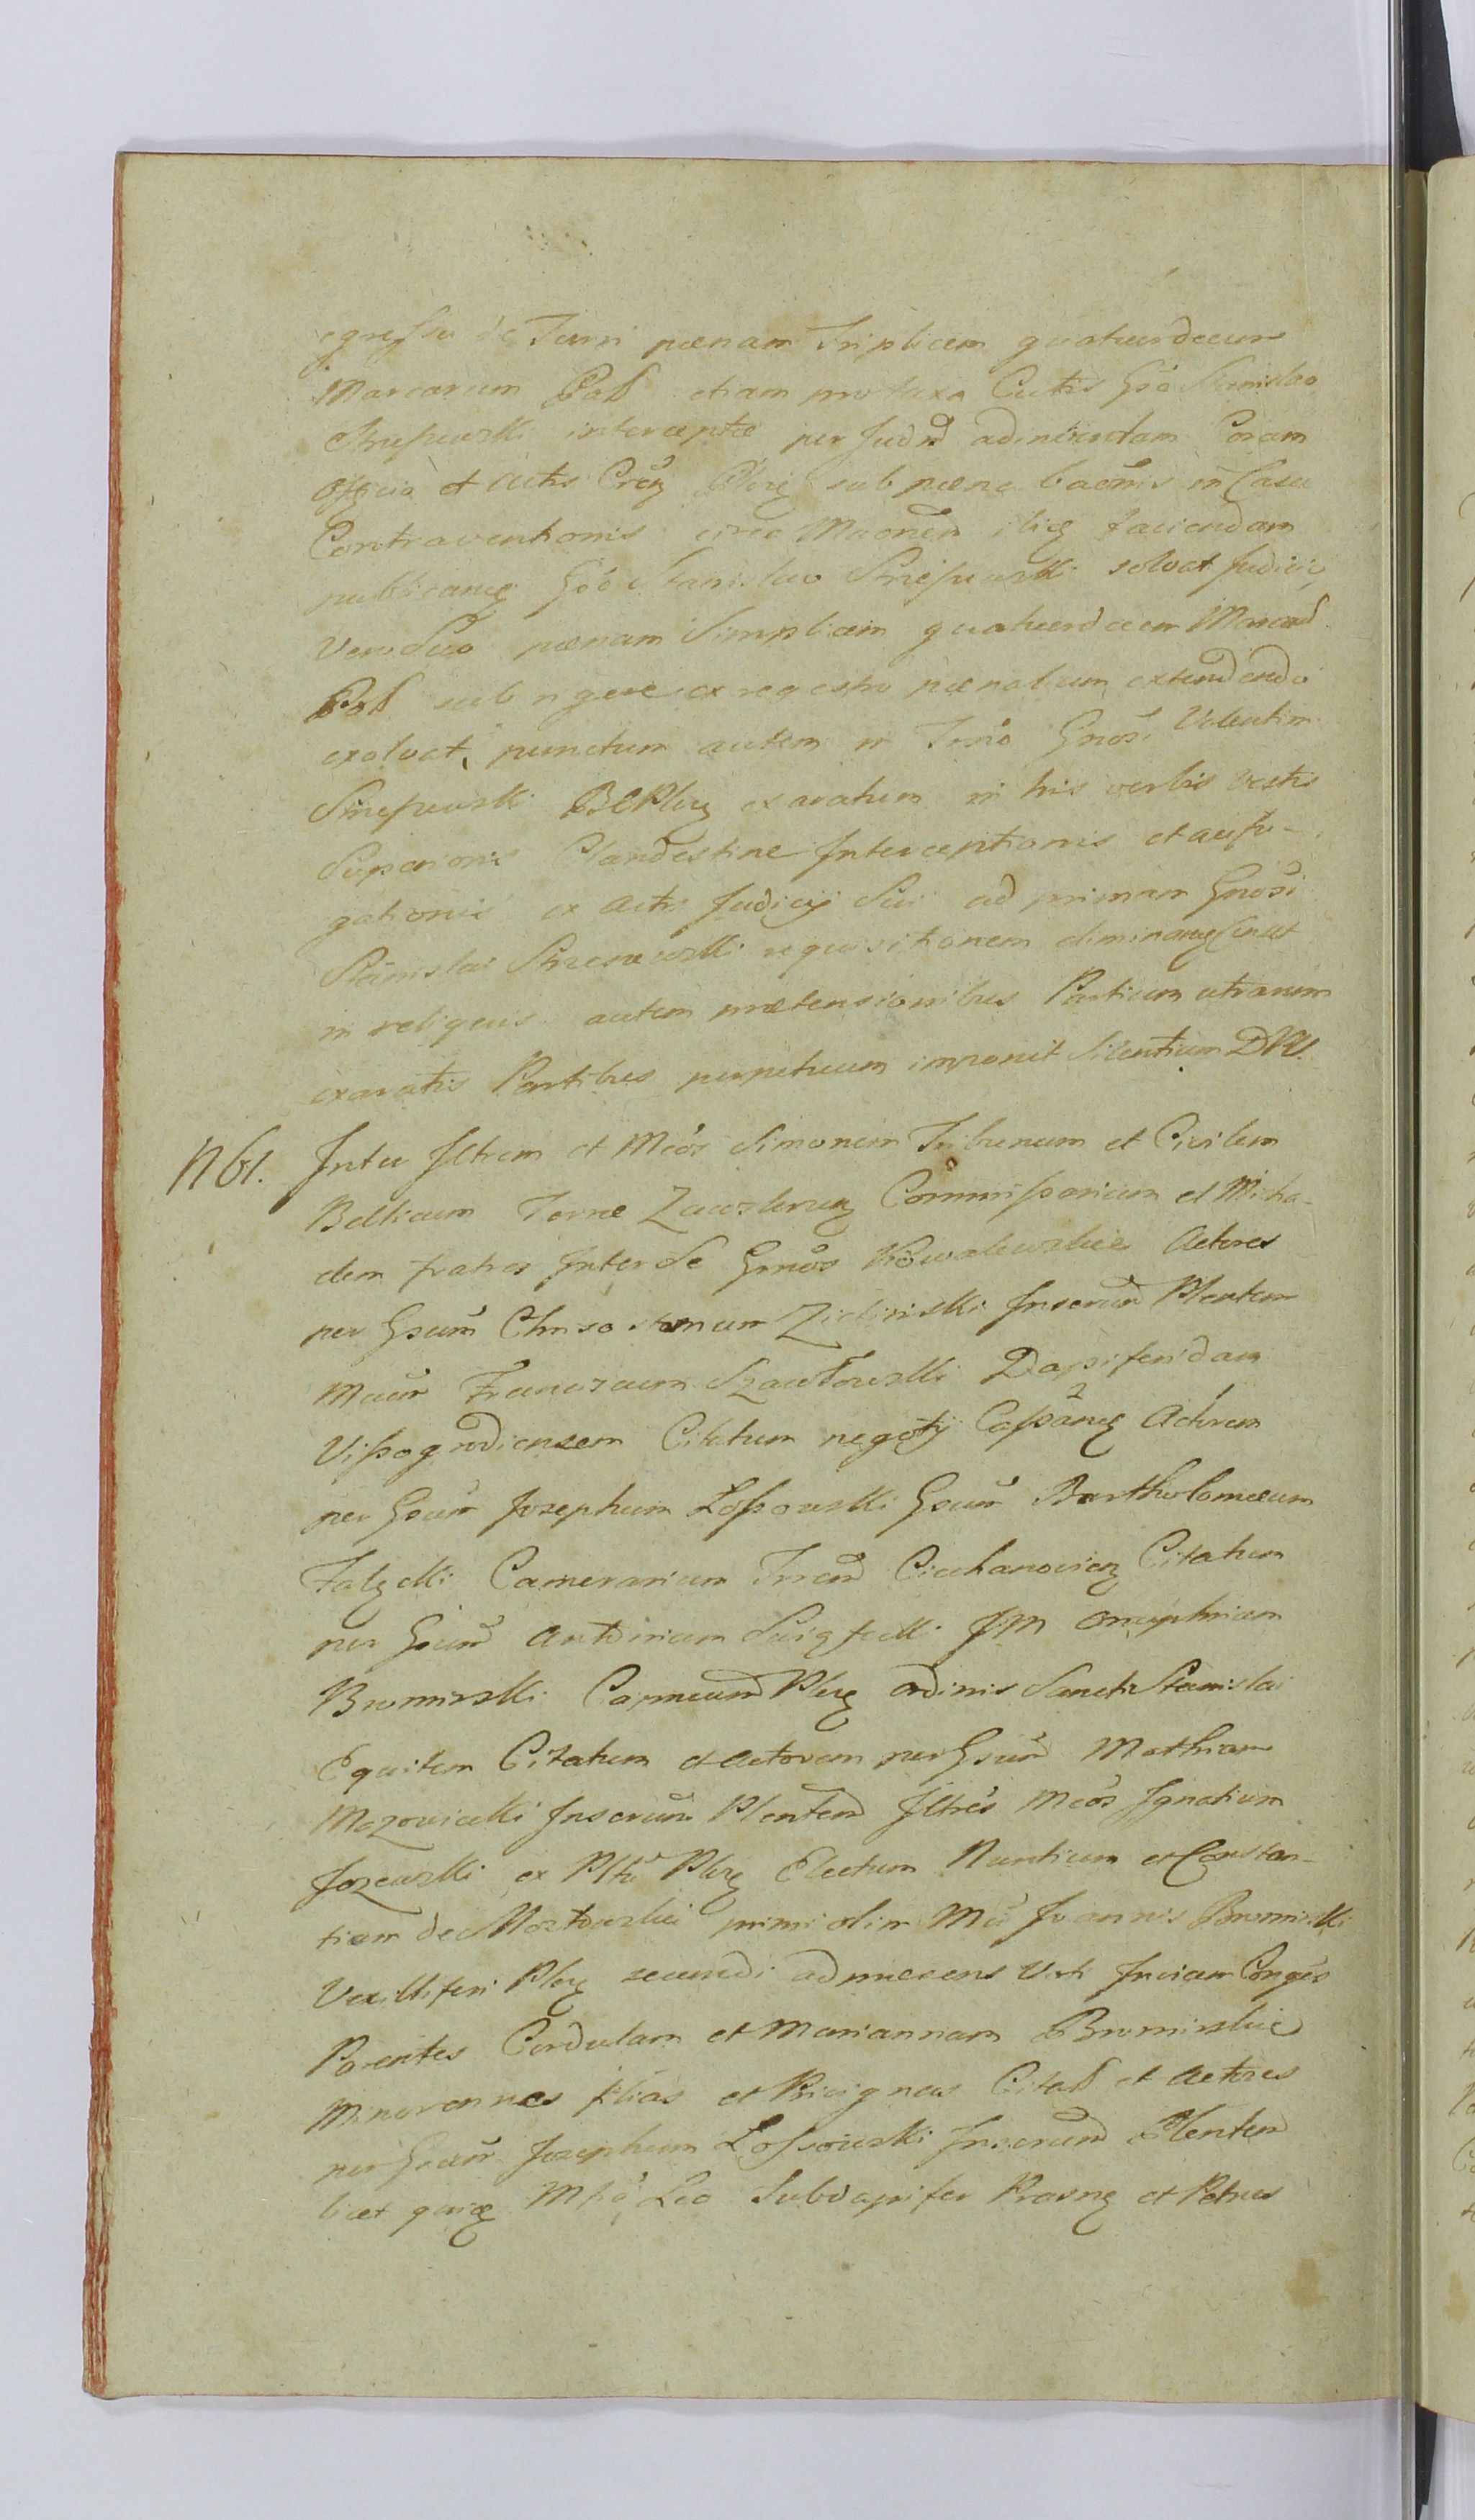 egressu de Turri pœnam Triplicem quatuordecim
Marcarum Pol etiam pro taxa Cutis Gso Stanislao
interceptæ per Judm adinventam Coram
Officio et Actis Cren Plocen sub pœna bannis in Casu
Contraventionis circa faciendam
Gso Stanislao solvat Judicio
Vero Suo pœnam Simplicem quatuordecim Marcar
Pol sub rigore ex regestro pœnalium extendendo
exolvat, punctum autem in Trno Gnosi Valentin
exaratum in his verbis Vestis
Superioris Clandestine Interceptionis et aufu-
gationis ex Actis Judicij Sui ad primam Gnosi
Stanislai requisitionem
in reliquis autem prætensionibus Partium utrarum
exaratis Partibus perpetuum imponit Silentium DPU.
N 61. Inter Iltrem et Mcos Simonem Tribunum et Civilem
Bellicum Terræ Zawskrzen Commissarium et Micha-
elem fratres Inter se Gnos Kowalewskie Actores
per Gsum Chrisostomum Zielinski Inserum Plentem
Mcum Franciscum Szawłowski Dapiferidam
Vissogrodiensem Citatum negotÿ Actorem
per Gsum Josephum Lossowski Gsum Bartholomæum
Falęcki Camerarium Trem Ciechanovien Citatum
per Gsum Antonium JM Onuphrium
Bromirski Plocen Ordinis Sancti Stanislai
Equitem Citatum et Actorem per Gsum Mathiam
Mazowiecki Inserum Plentem Iltres Mcos Ignatium
Jozewski ex Pltu Plocen Electum Nuntium et Constan-
tiam de primi olim Mci Joannis Bromirski
Vexilliferi Plocen secundi ad præsens Voti Invicem Conges
Parentes Cordulam et Mariannam Bromirskie
Minorennes filias et Privignas Citat et Actores
per Gsum Josephum Lossowski Inserum Plentem
licet Leo Subdapifer Prasn et Petrus